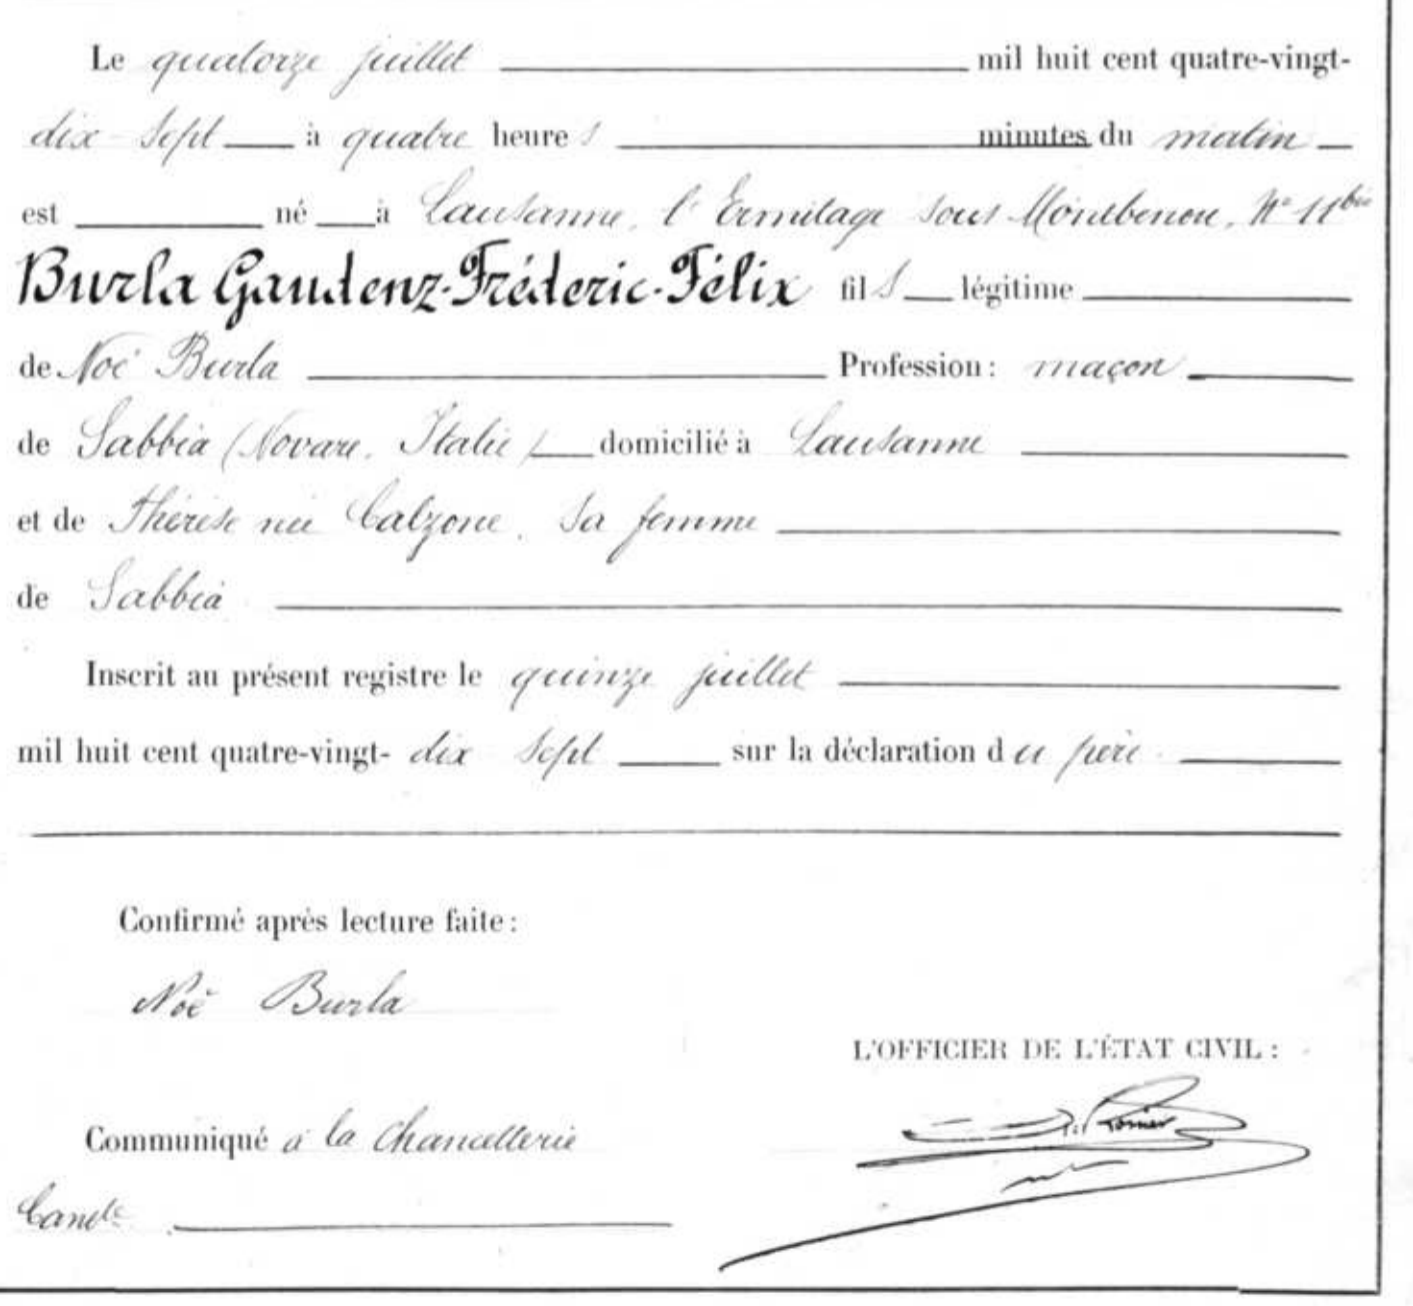 Le quatorze juillet mil huit cent quatre-vingt-
dix-sept à quatre heures minutes du matin
est né à Lausanne, l'Ermitage sous Montbenon, N° 11 bis
Burla Gaudenz-Fréderic-Félix fils légitime
de Noé Burla Profession: maçon
de Sabbia (Novare, Italie) domicilié à Lausanne
et de Thérèse née Calzone, sa femme
de Sabbia
Inscrit au présent registre le quinze juillet
mil huit cent quatre-vingt-dix sept sur la déclaration du père
Confirmé après lecture faite:
Noé Burla
L'OFFICIER DE L'ÉTAT CIVIL:
Communiqué à la Chancellerie
Cant.le